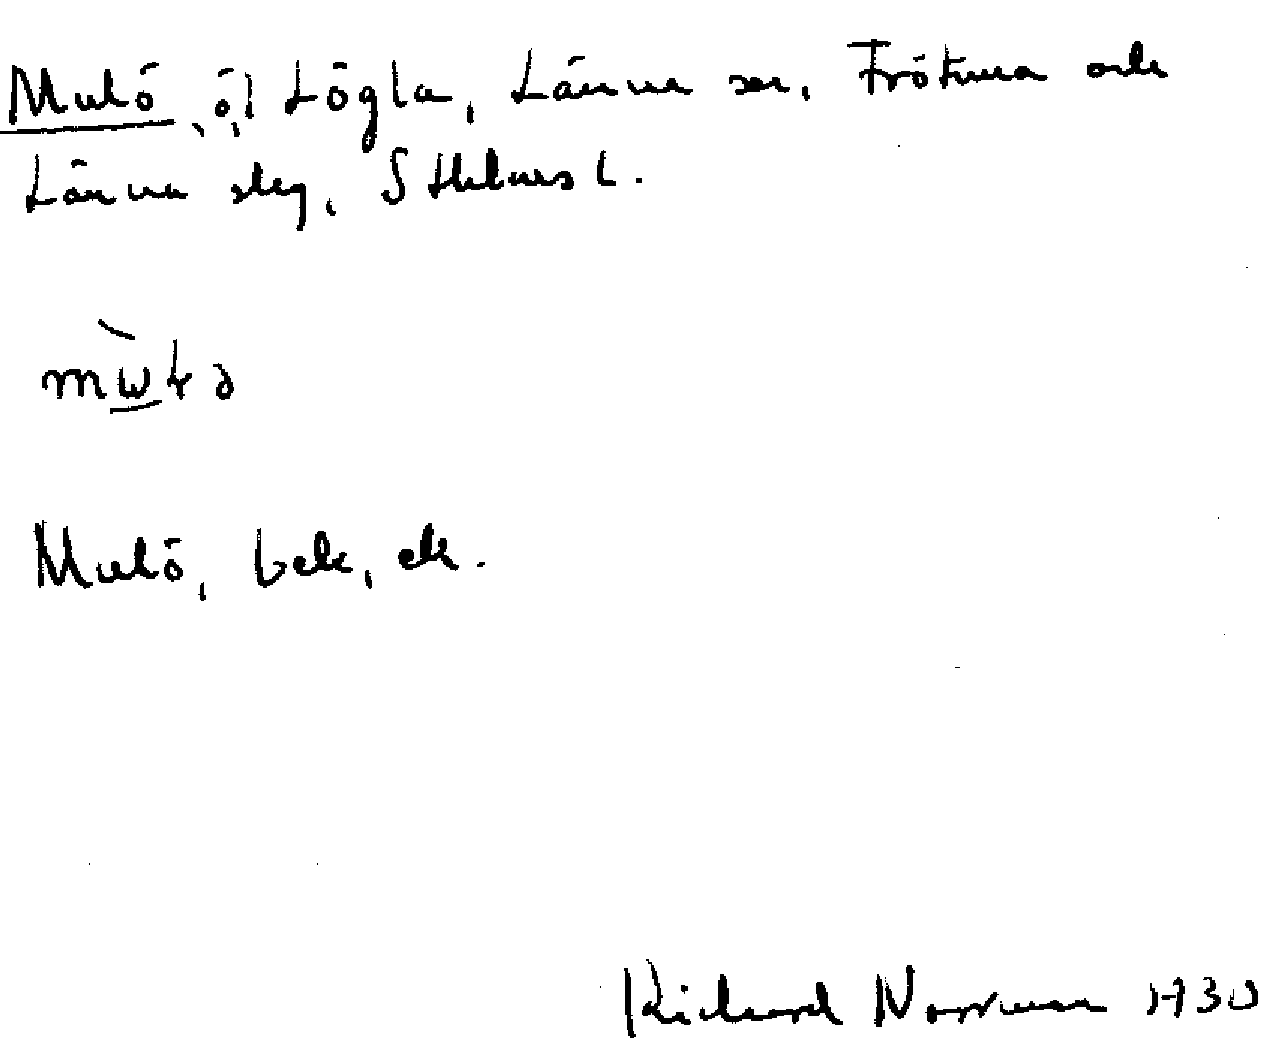 Mulö, ö, i Lögla, Länna sn, Frötuna och
Länna skg, Sthlms l.
Mulö, bek, ek.
Richard Norrman 1930